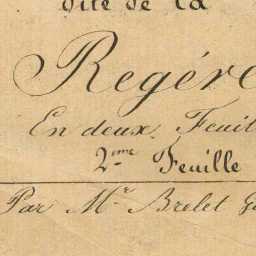 dite de la
Regére
En deux Feuil
2me Feuille
Par Mr. Brelet